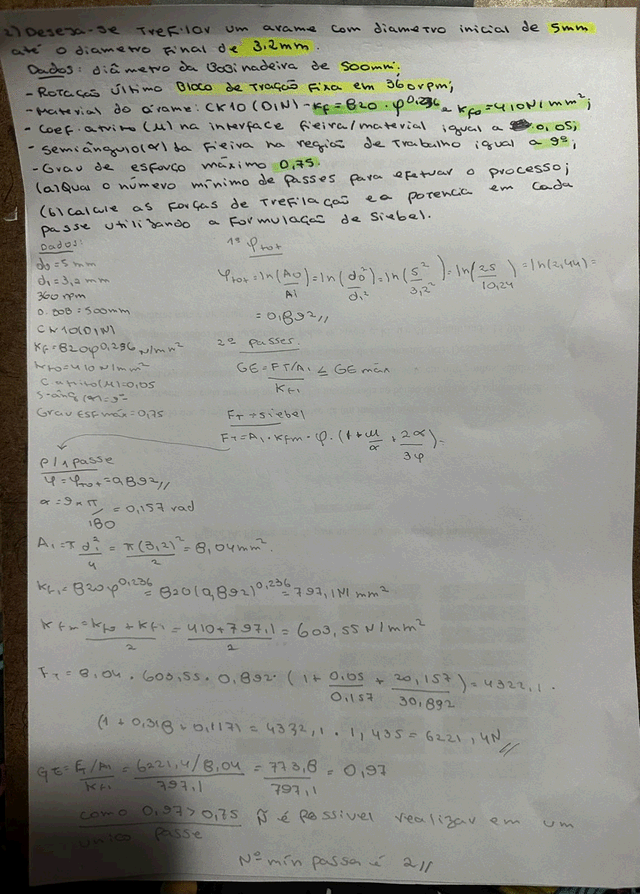 2) Deseja-se Trefilar um arame com diametro inicial de 5mm
até o diametro Final de 3,2mm.
Dados: diâmetro da Bobinadeira de 500mm;
- Rotação último Bloco de Tração Fixa em 360rpm;
- Material do arame: CK10 (DIN) - KF = 820 · φ^0,236 e KFo = 410 N/mm²;
- Coef. atrito (μ) na interface fieira/material igual a 0,05;
- Semiângulo (α) da Fieira na região de Trabalho igual a 9º;
- Grau de esforço máximo 0,75.
(a) Qual o número mínimo de passes para efetuar o processo;
(b) calcule as Forças de Trefilação e a potencia em cada
passe utilizando a Formulação de Siebel.
Dados:
d0 = 5 mm
d1 = 3,2 mm
360 rpm
D.BOB = 500mm
CK10 (DIN)
KF = 820φ^0,236 N/mm²
KFo = 410 N/mm²
C. atrito (μ) = 0,05
S-âng (α) = 9º
Grau ESF máx = 0,75
1º φtot
φtot = ln(A0/A1) = ln(d0²/d1²) = ln(5²/3,2²) = ln(25/10,24) = ln(2,44) =
= 0,892//
2º passes.
GE = FT/A1 / KF1 ≤ GE máx
FT → siebel
FT = A1 · KFm · φ · (1 + μ/α + 2α/3φ) =
p/ 1 passe
φ = φtot = 0,892//
α = 9 x π/180 = 0,157 rad
A1 = π d1²/4 = π(3,2)²/2 = 8,04 mm².
KF1 = 820φ^0,236 = 820(0,892)^0,236 = 797,1 N/mm²
KFm = KFo + KF1 / 2 = 410 + 797,1 / 2 = 603,55 N/mm²
FT = 8,04 · 603,55 · 0,892 · (1 + 0,05/0,157 + 20,157/30,892) = 4322,1 ·
(1 + 0,318 + 0,117) = 4332,1 · 1,435 = 6221,4N//
GE = FT/A1 / KF1 = 6221,4/8,04 / 797,1 = 773,8 / 797,1 = 0,97
como 0,97 > 0,75 ñ é possivel realizar em um
único passe
Nº min passa é 2//